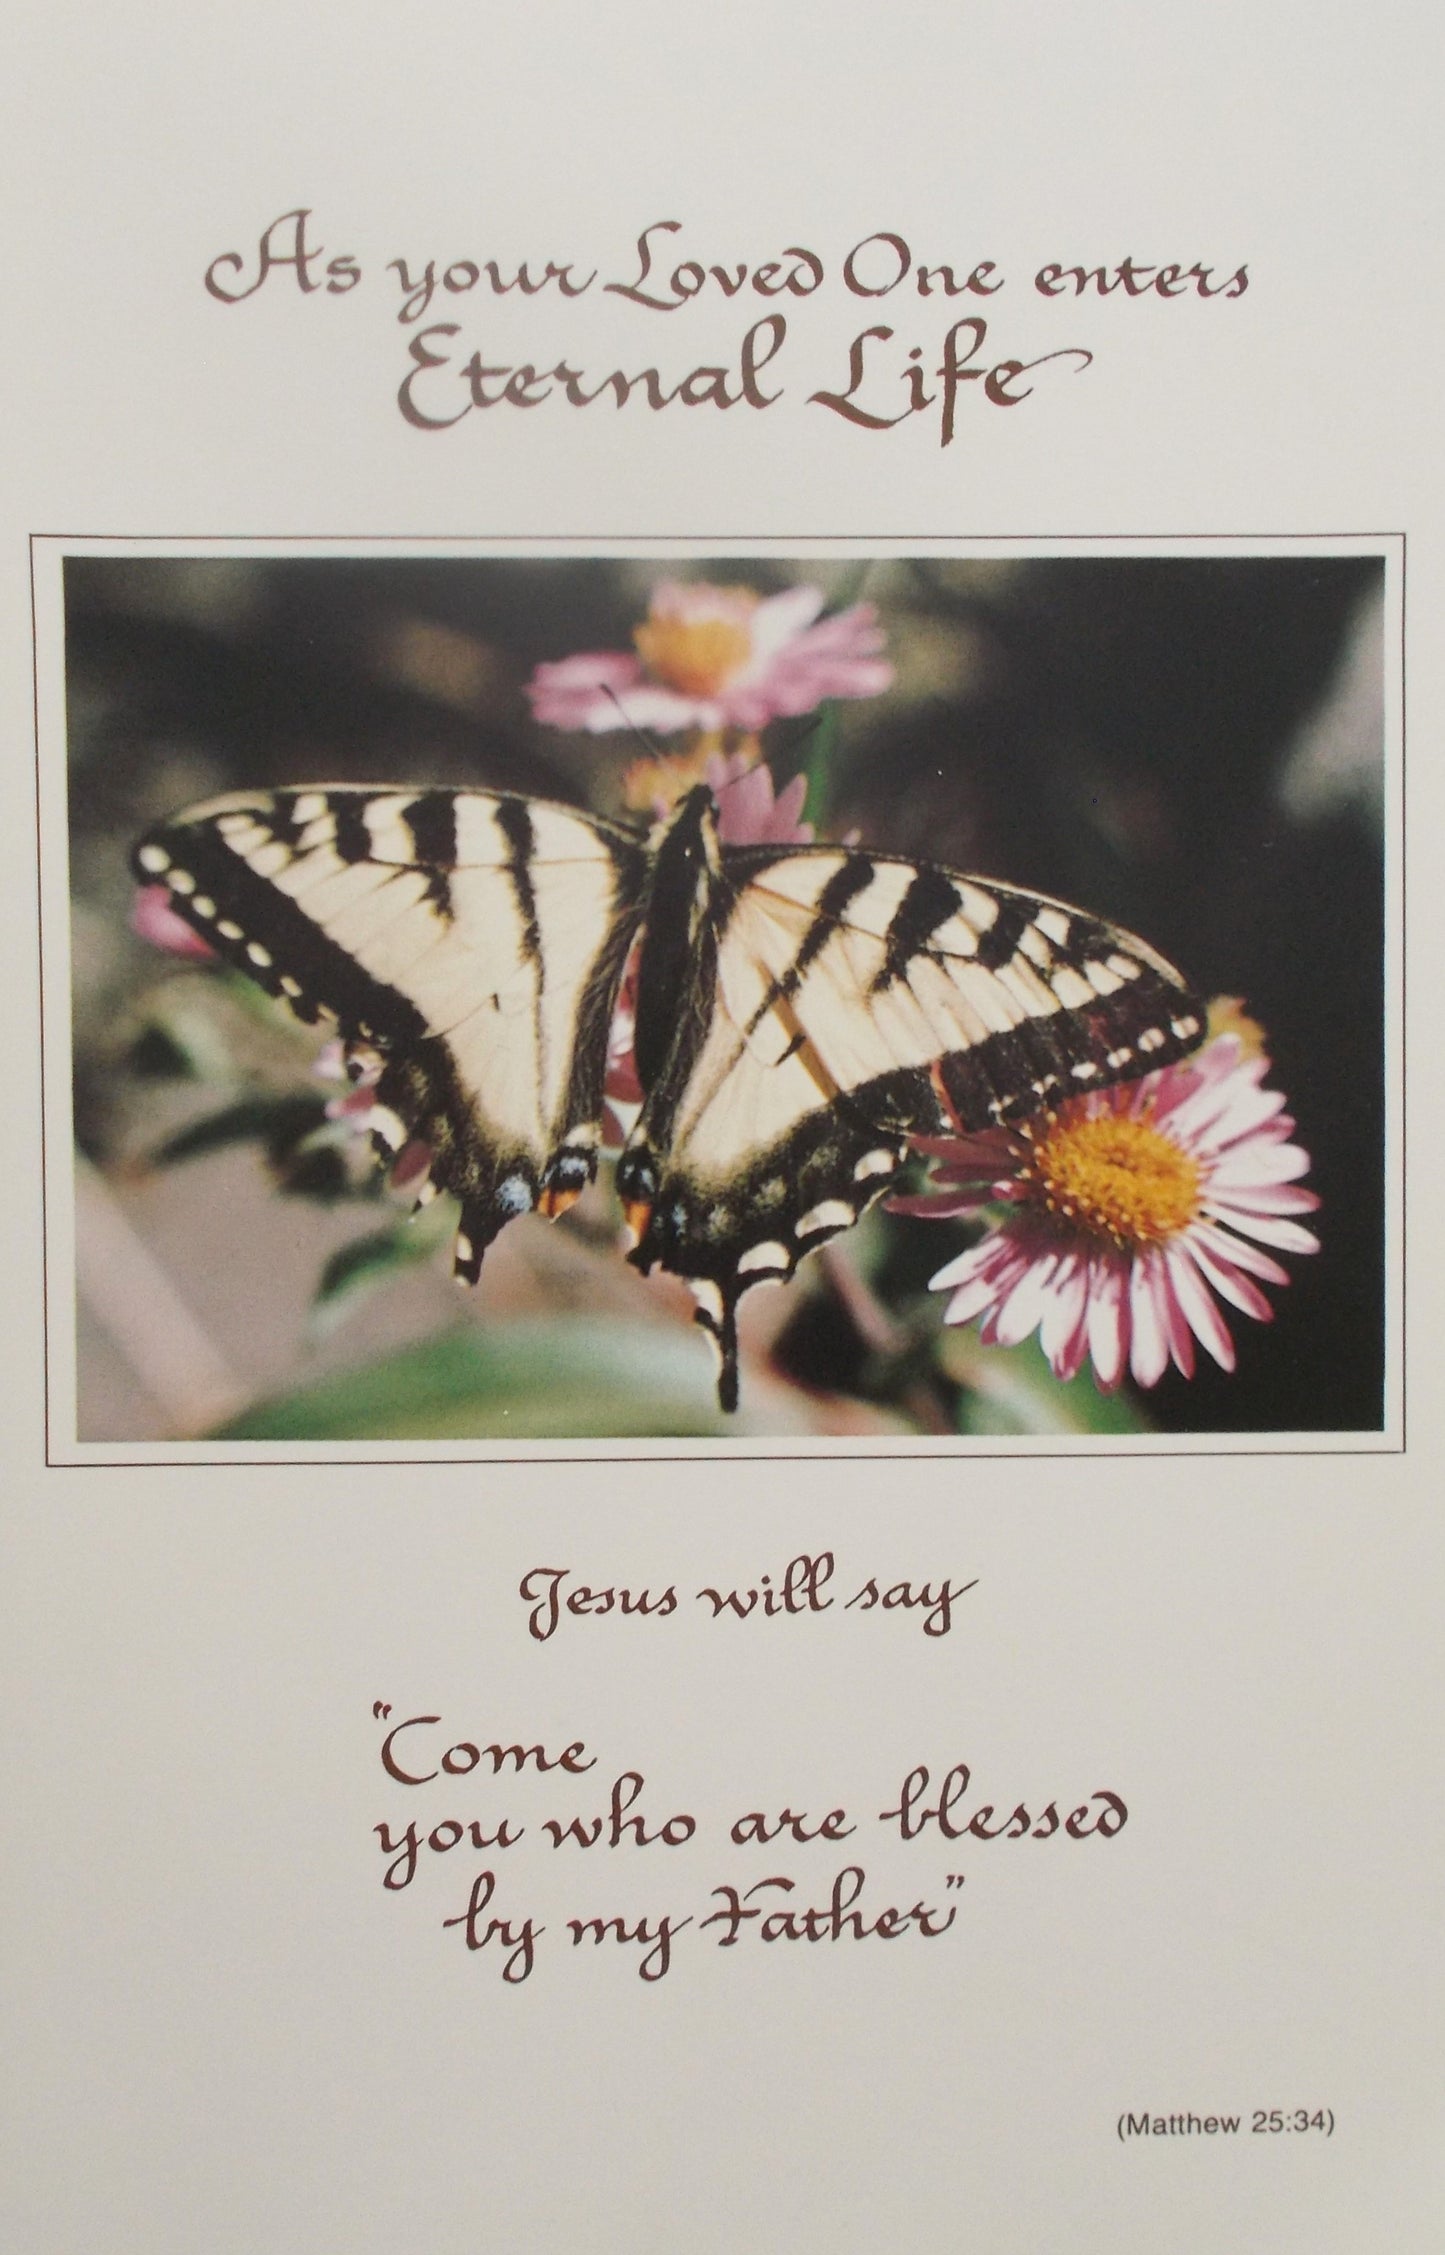 As your Loved One enters
Eternal Life
Jesus will say
"Come
you who are blessed
by my Father"
(Matthew 25:34)